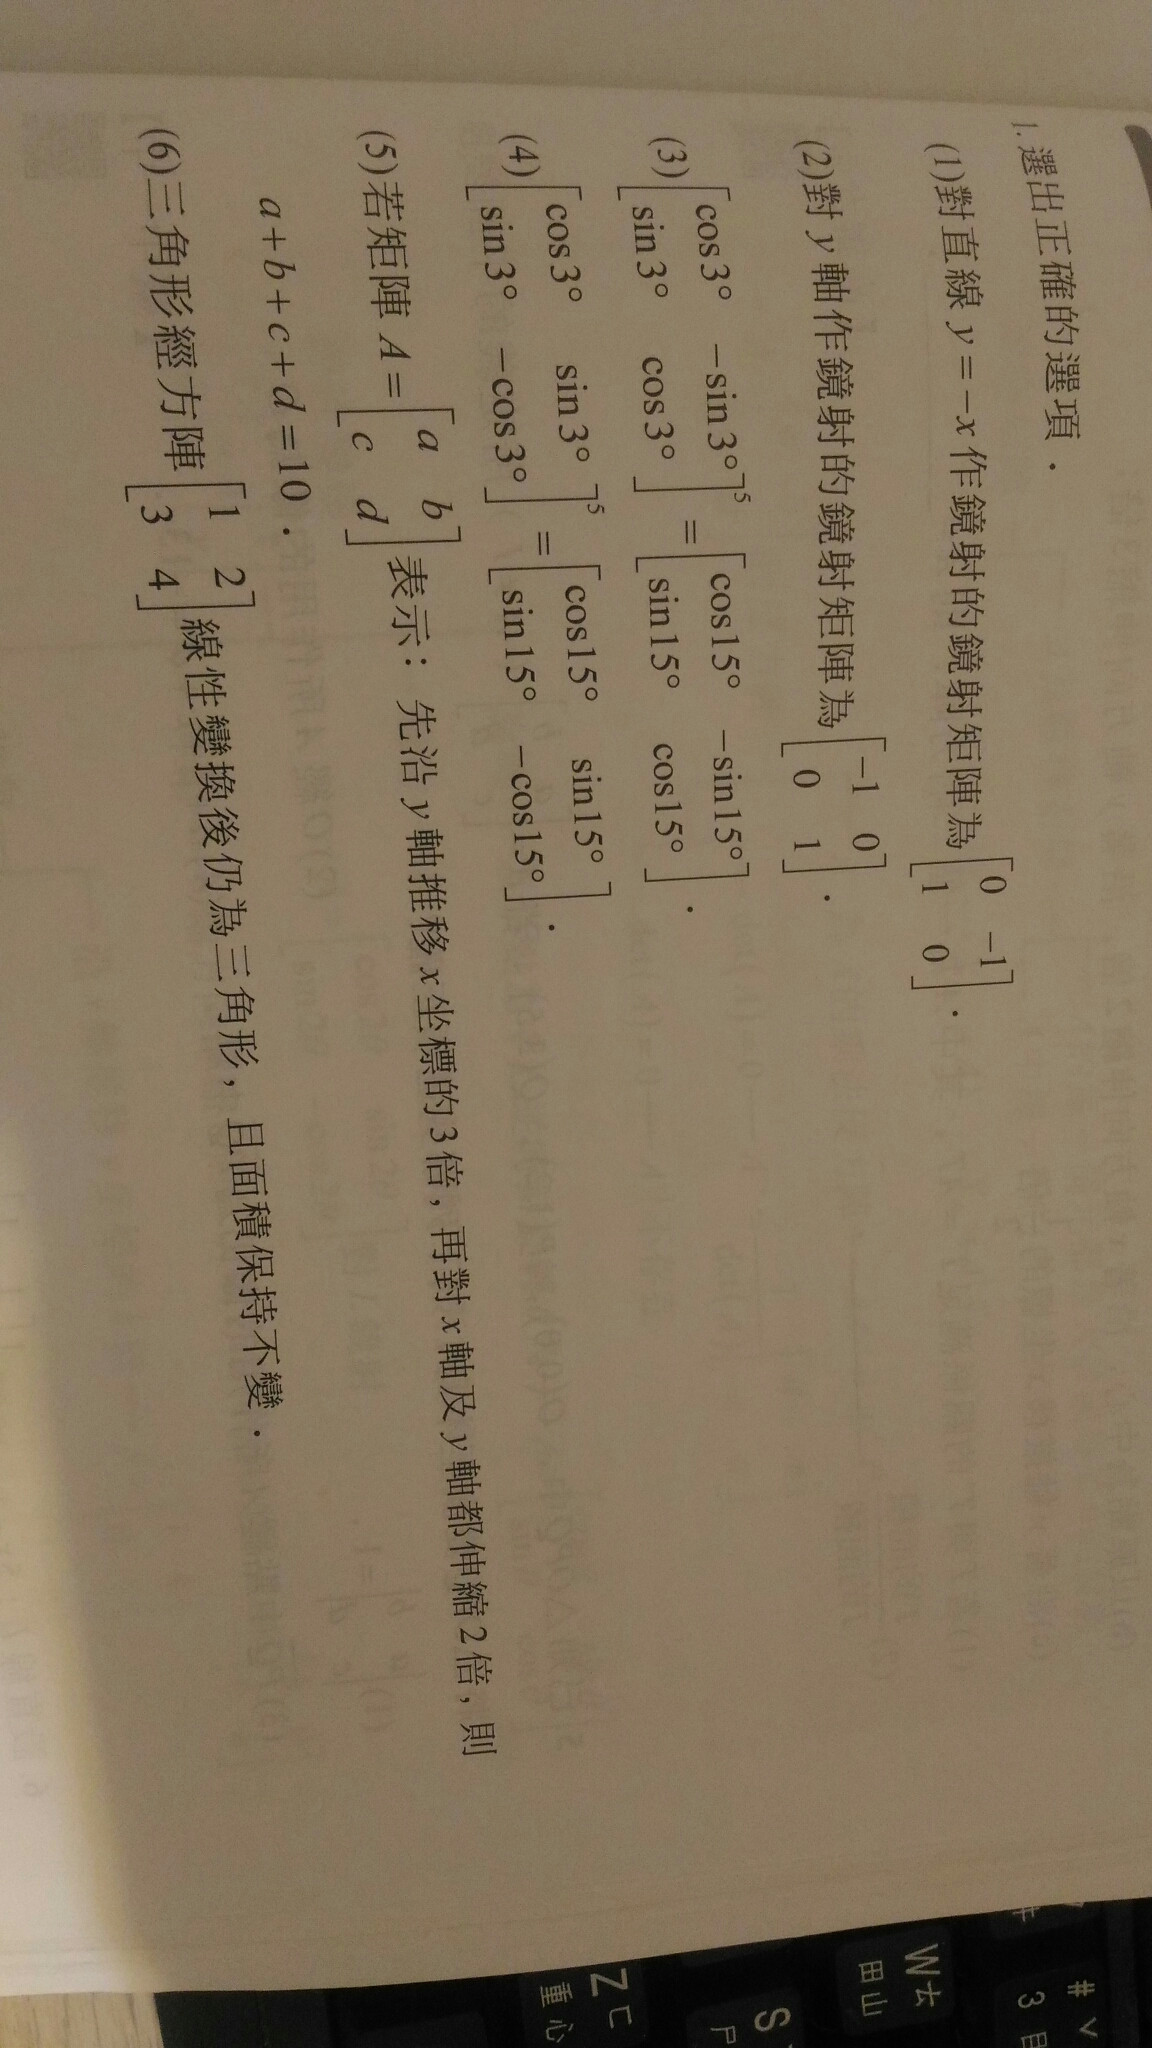 1. 選出正確的選項．
(1)對直線 y = −x 作鏡射的鏡射矩陣為 [0 −1; 1 0]．
(2)對 y 軸作鏡射的鏡射矩陣為 [−1 0; 0 1]．
(3) [cos3° −sin3°; sin3° cos3°]⁵ = [cos15° −sin15°; sin15° cos15°]．
(4) [cos3° sin3°; sin3° −cos3°]⁵ = [cos15° sin15°; sin15° −cos15°]．
(5)若矩陣 A = [a b; c d] 表示：先沿 y 軸推移 x 坐標的3倍，再對 x 軸及 y 軸都伸縮2倍，則
a + b + c + d = 10．
(6)三角形經方陣 [1 2; 3 4] 線性變換後仍為三角形，且面積保持不變．
# ˇ
3 目
W ㄊ
田 山
S
尸
Z ㄈ
重 心